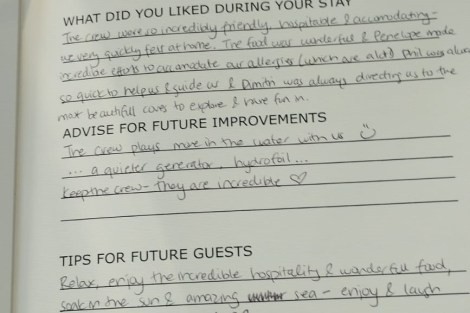 WHAT DID YOU LIKED DURING YOUR STAY
The crew were so incredibly friendly, hospitable & accomodating -
we very quickly felt at home. The food was wonderful & Penelope made
incredible efforts to accomodate our allergies (which are alot) Phil was always
so quick to help us & guide us & Dimitri was always directing us to the
most beautifull coves to explore & have fun in.
ADVISE FOR FUTURE IMPROVEMENTS
The crew plays more in the water with us ☺
... a quieter generator, hydrofoil ...
Keep the crew - they are incredible ♡
TIPS FOR FUTURE GUESTS
Relax, enjoy the incredible hospitality & wonderful food,
soak in the sun & amazing sea - enjoy & laugh